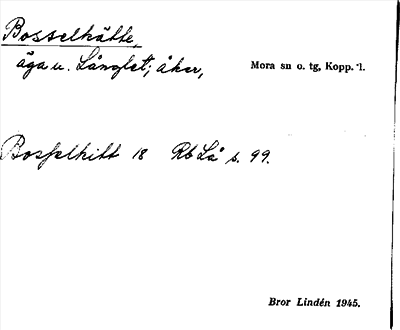 Bosselhätte,
äga u. Långlet; åker,
Mora sn o. tg, Kopp. l.
Bosselhitt 18 Rb Lå s. 99.
Bror Lindén 1945.